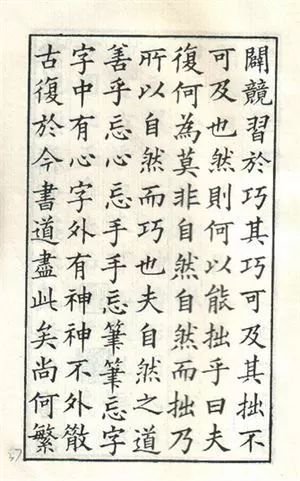 闢競習於巧其巧可及其拙不
可及也然則何以能拙乎曰夫
復何為莫非自然自然而拙乃
所以自然而巧也夫自然之道
善乎忘心忘手手忘筆筆忘字
字中有心字外有神神不外散
古復於今書道盡此矣尚何繁